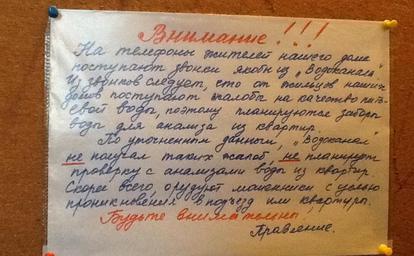 Внимание!!!
На телефоны жителей нашего дома
поступают звонки якобы из „Водоканала".
Из звонков следует, что от жильцов наших
домов поступают жалобы на качество пить-
евой воды, поэтому планируются заборы
воды для анализа из квартир.
По уточненным данным, „Водоканал"
не получал таких жалоб, не планирует
проверку с анализами воды из квартир.
Скорее всего, орудуют мошенники с целью
проникновения в подъезд или квартиры.
Будьте внимательны!
Правление.